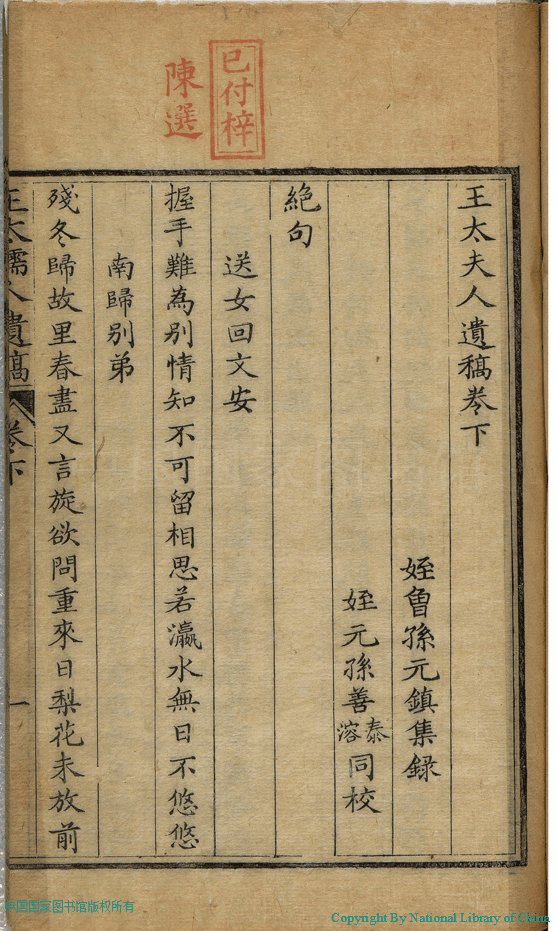 已付梓
陳選
王太夫人遺稿卷下
姪曾孫元鎮集録
姪元孫善泰溶同校
絶句
送女回文安
握手難為别情知不可留相思若瀛水無日不悠悠
南歸别弟
殘冬歸故里春盡又言旋欲問重來日梨花未放前
王太孺人遺稿 卷下 一
中国国家图书馆版权所有
Copyright By National Library of China